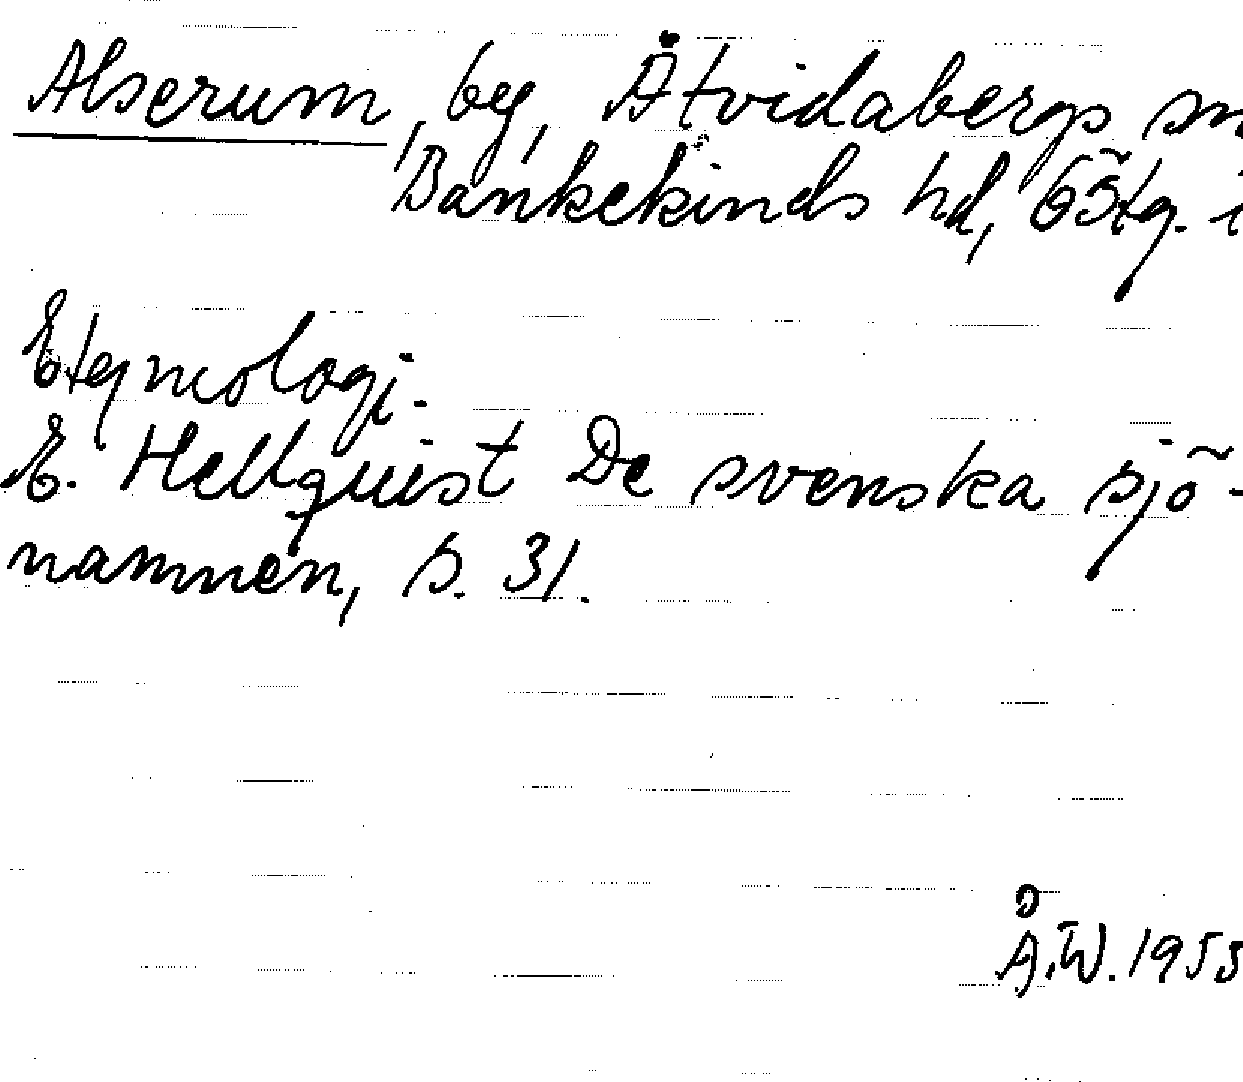 Alserum, by, Åtvidabergs sn
Bankekinds hd, Östg.
Etymologi.
E. Hellquist De svenska sjö-
namnen, s. 31.
Å.W. 1955